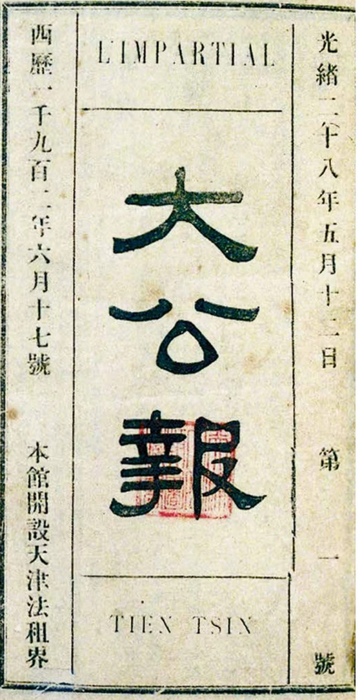 光緒二十八年五月十二日 第一號
L'IMPARTIAL
大公報
TIEN TSIN
西歷一千九百二年六月十七號 本館開設天津法租界